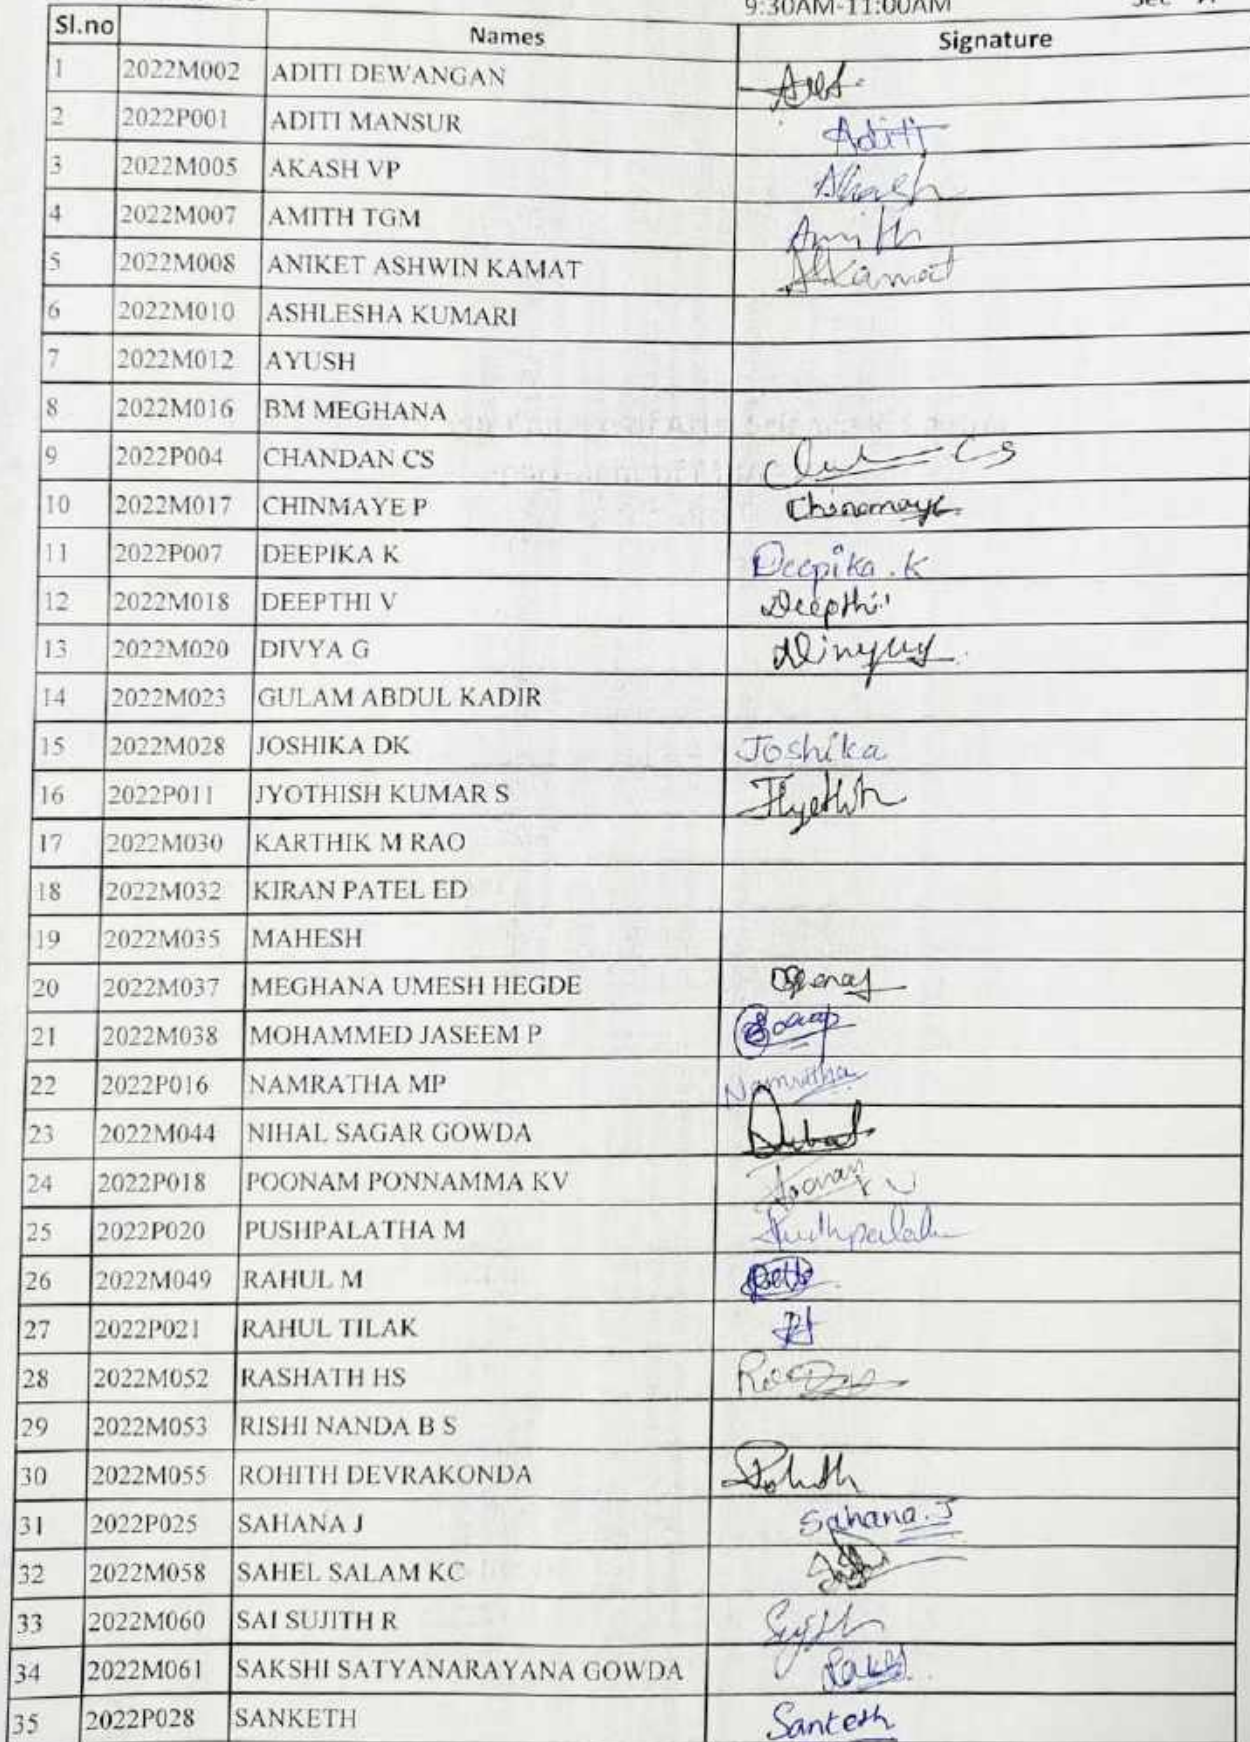 9:30AM-11:00AM
Sl.no Names Signature
1 2022M002 ADITI DEWANGAN
2 2022P001 ADITI MANSUR Aditi
3 2022M005 AKASH VP Akash
4 2022M007 AMITH TGM Amith
5 2022M008 ANIKET ASHWIN KAMAT AKamat
6 2022M010 ASHLESHA KUMARI
7 2022M012 AYUSH
8 2022M016 BM MEGHANA
9 2022P004 CHANDAN CS CS
10 2022M017 CHINMAYE P Chinamaye
11 2022P007 DEEPIKA K Deepika.K
12 2022M018 DEEPTHI V Deepthi
13 2022M020 DIVYA G
14 2022M023 GULAM ABDUL KADIR
15 2022M028 JOSHIKA DK Joshika
16 2022P011 JYOTHISH KUMAR S
17 2022M030 KARTHIK M RAO
18 2022M032 KIRAN PATEL ED
19 2022M035 MAHESH
20 2022M037 MEGHANA UMESH HEGDE
21 2022M038 MOHAMMED JASEEM P
22 2022P016 NAMRATHA MP Namratha
23 2022M044 NIHAL SAGAR GOWDA
24 2022P018 POONAM PONNAMMA KV
25 2022P020 PUSHPALATHA M
26 2022M049 RAHUL M
27 2022P021 RAHUL TILAK
28 2022M052 RASHATH HS
29 2022M053 RISHI NANDA B S
30 2022M055 ROHITH DEVRAKONDA Rohith
31 2022P025 SAHANA J Sahana.J
32 2022M058 SAHEL SALAM KC
33 2022M060 SAI SUJITH R Sujith
34 2022M061 SAKSHI SATYANARAYANA GOWDA
35 2022P028 SANKETH Sanketh